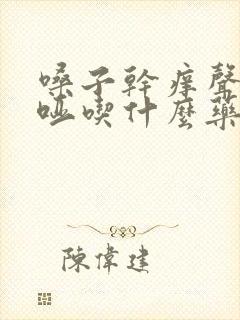 嗓子幹痒聲
啞喫什麼藥
陳偉建